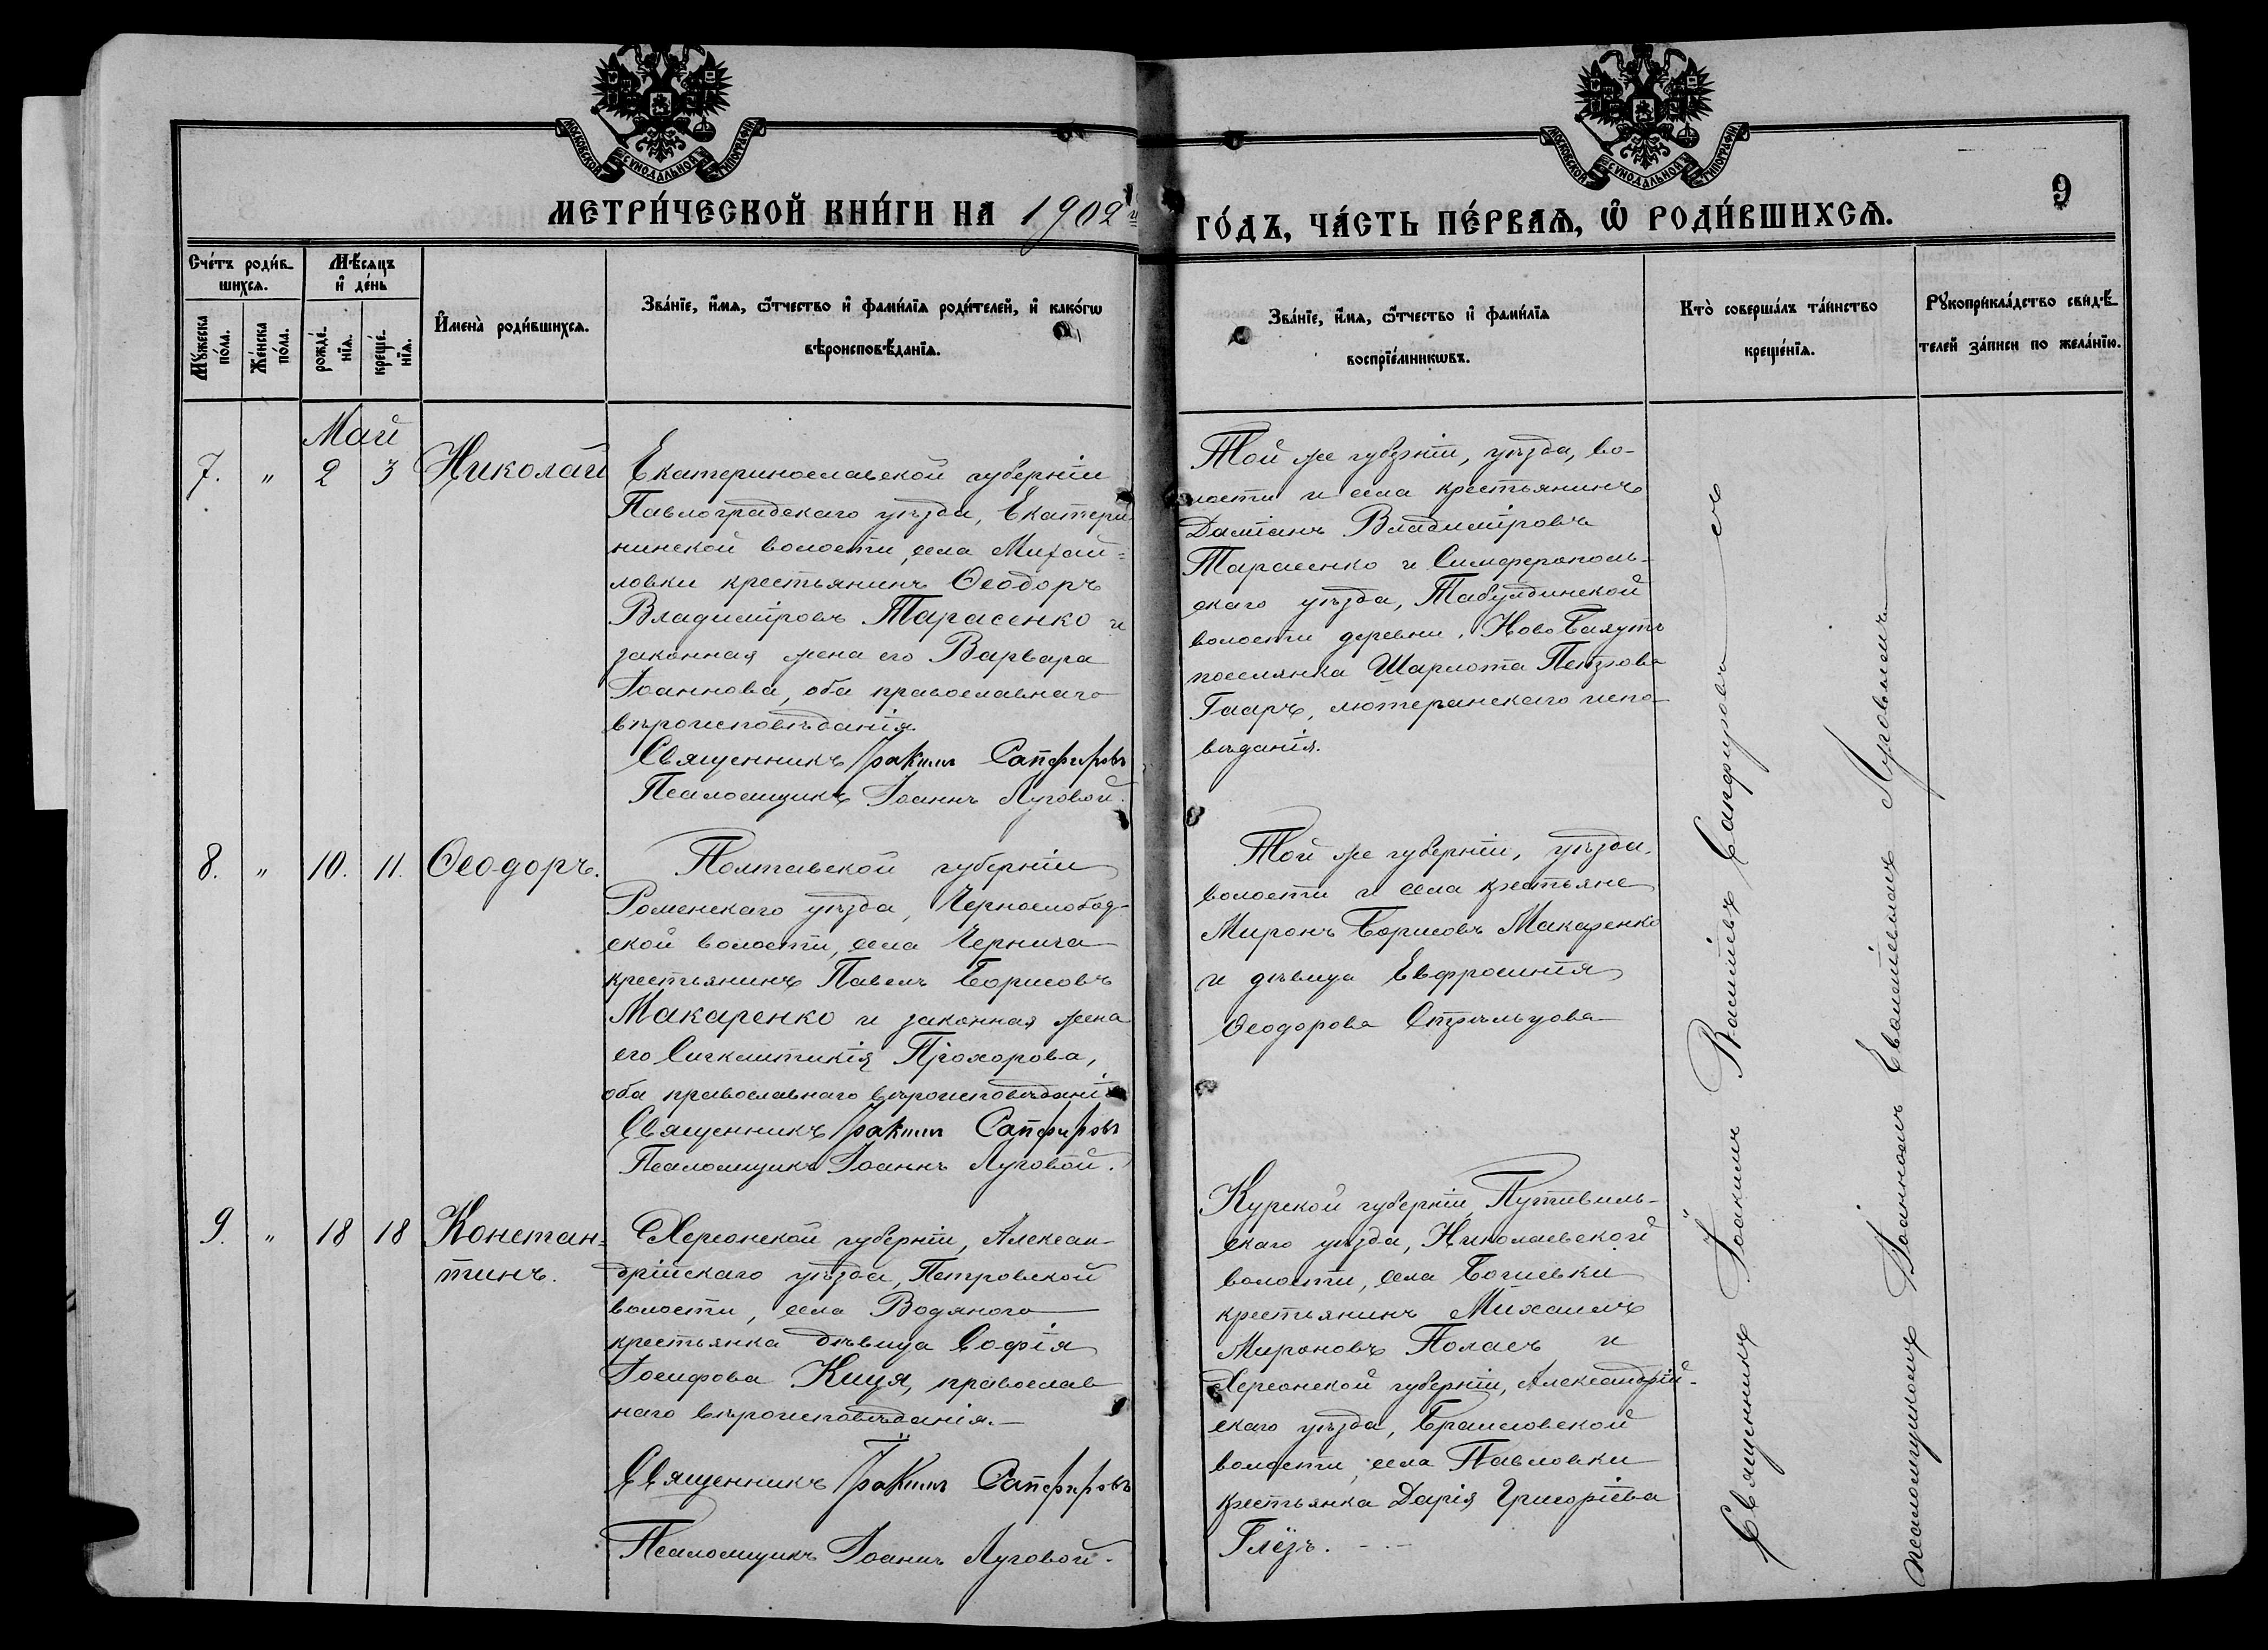 МОСКОВСКОЙ СУНОДАЛЬНОЙ ТИПОГРАФІИ
МОСКОВСКОЙ СУНОДАЛЬНОЙ ТИПОГРАФІИ
МЕТРИ́ЧЕСКОЙ КНИ́ГИ НА 1902й
ГО́ДЪ, ЧА́СТЬ ПЕ́РВАѦ, Ѽ РОДИ́ВШИХСѦ.
9
Сче́тъ роди́в-
шихсѧ.
Мѣ́сяцъ
и҆ де́нь
Мꙋ́жеска
по́ла.
Же́нска
по́ла.
рожде́-
нїѧ.
креще́-
нїѧ.
И҆мена̀ роди́вшихсѧ.
Зва́нїе, и҆́мѧ, ѻ҆́тчество и҆ фами́лїѧ роди́телей, и҆ како́гѡ
вѣроисповѣ́данїѧ.
Зва́нїе, и҆́мѧ, ѻ҆́тчество и҆ фами́лїѧ
воспрїе́мникѡвъ.
Кто̀ соверша́лъ та́инство
креще́нїѧ.
Рꙋкоприкла́дство свидѣ́-
телей за́писи по жела́нїю.
Май
7. " 2 3 Николай
Екатеринославской губерніи
Павлоградскаго уѣзда, Екатери
нинской волости, села Михай=
ловки крестьянинъ Ѳеодоръ
Владиміровъ Тарасенко и
законная жена его Варвара
Іоаннова, оба православнаго
вѣроисповѣданія.
Священникъ Іоакимъ Сапфировъ
Псаломщикъ Іоаннъ Луговой.
Той же губерніи, уѣзда, во-
лости и села крестьянинъ
Даміанъ Владиміровъ
Тарасенко и Симферополь-
скаго уѣзда, Табулдинской
волости деревни Ново Баяутъ
поселянка Шарлота Петрова
Гааръ, лютеранскаго испо
вѣданія.
8. " 10. 11. Ѳеодоръ.
Полтавской губерніи
Роменскаго уѣзда, Чернослобод-
ской волости, села Чернича
крестьянинъ Павелъ Борисовъ
Макаренко и законная жена
его Сигклитикія Прохорова,
оба православнаго вѣроисповѣданія
Священникъ Іоакимъ Сапфировъ
Псаломщикъ Іоаннъ Луговой.
Той же губерніи, уѣзда,
волости и села крестьяне
Миронъ Борисовъ Макаренко
и дѣвица Евфросинія
Ѳеодорова Стрѣльцова
9. " 18 18 Констан=
тинъ.
Херсонской губерніи, Алексан-
дрійскаго уѣзда, Петровской
волости, села Водяного
крестьянка дѣвица Софія
Іосифова Киця, православ
наго вѣроисповѣданія.—
Священникъ Іоакимъ Сапфировъ
Псаломщикъ Іоаннъ Луговой.
Курской губерніи, Путивль-
скаго уѣзда, Николаевской
волости, села
крестьянинъ Михаилъ
Мироновъ Поласъ и
Херсонской губерніи, Александрій-
скаго уѣзда, Браиловской
волости, села Павловки
крестьянка Дарія Григоріева
Глёзъ.
Священникъ Іоакимъ Василіевъ Сапфировъ съ
псаломщикомъ Іоанномъ Евсигніевымъ Луговымъ